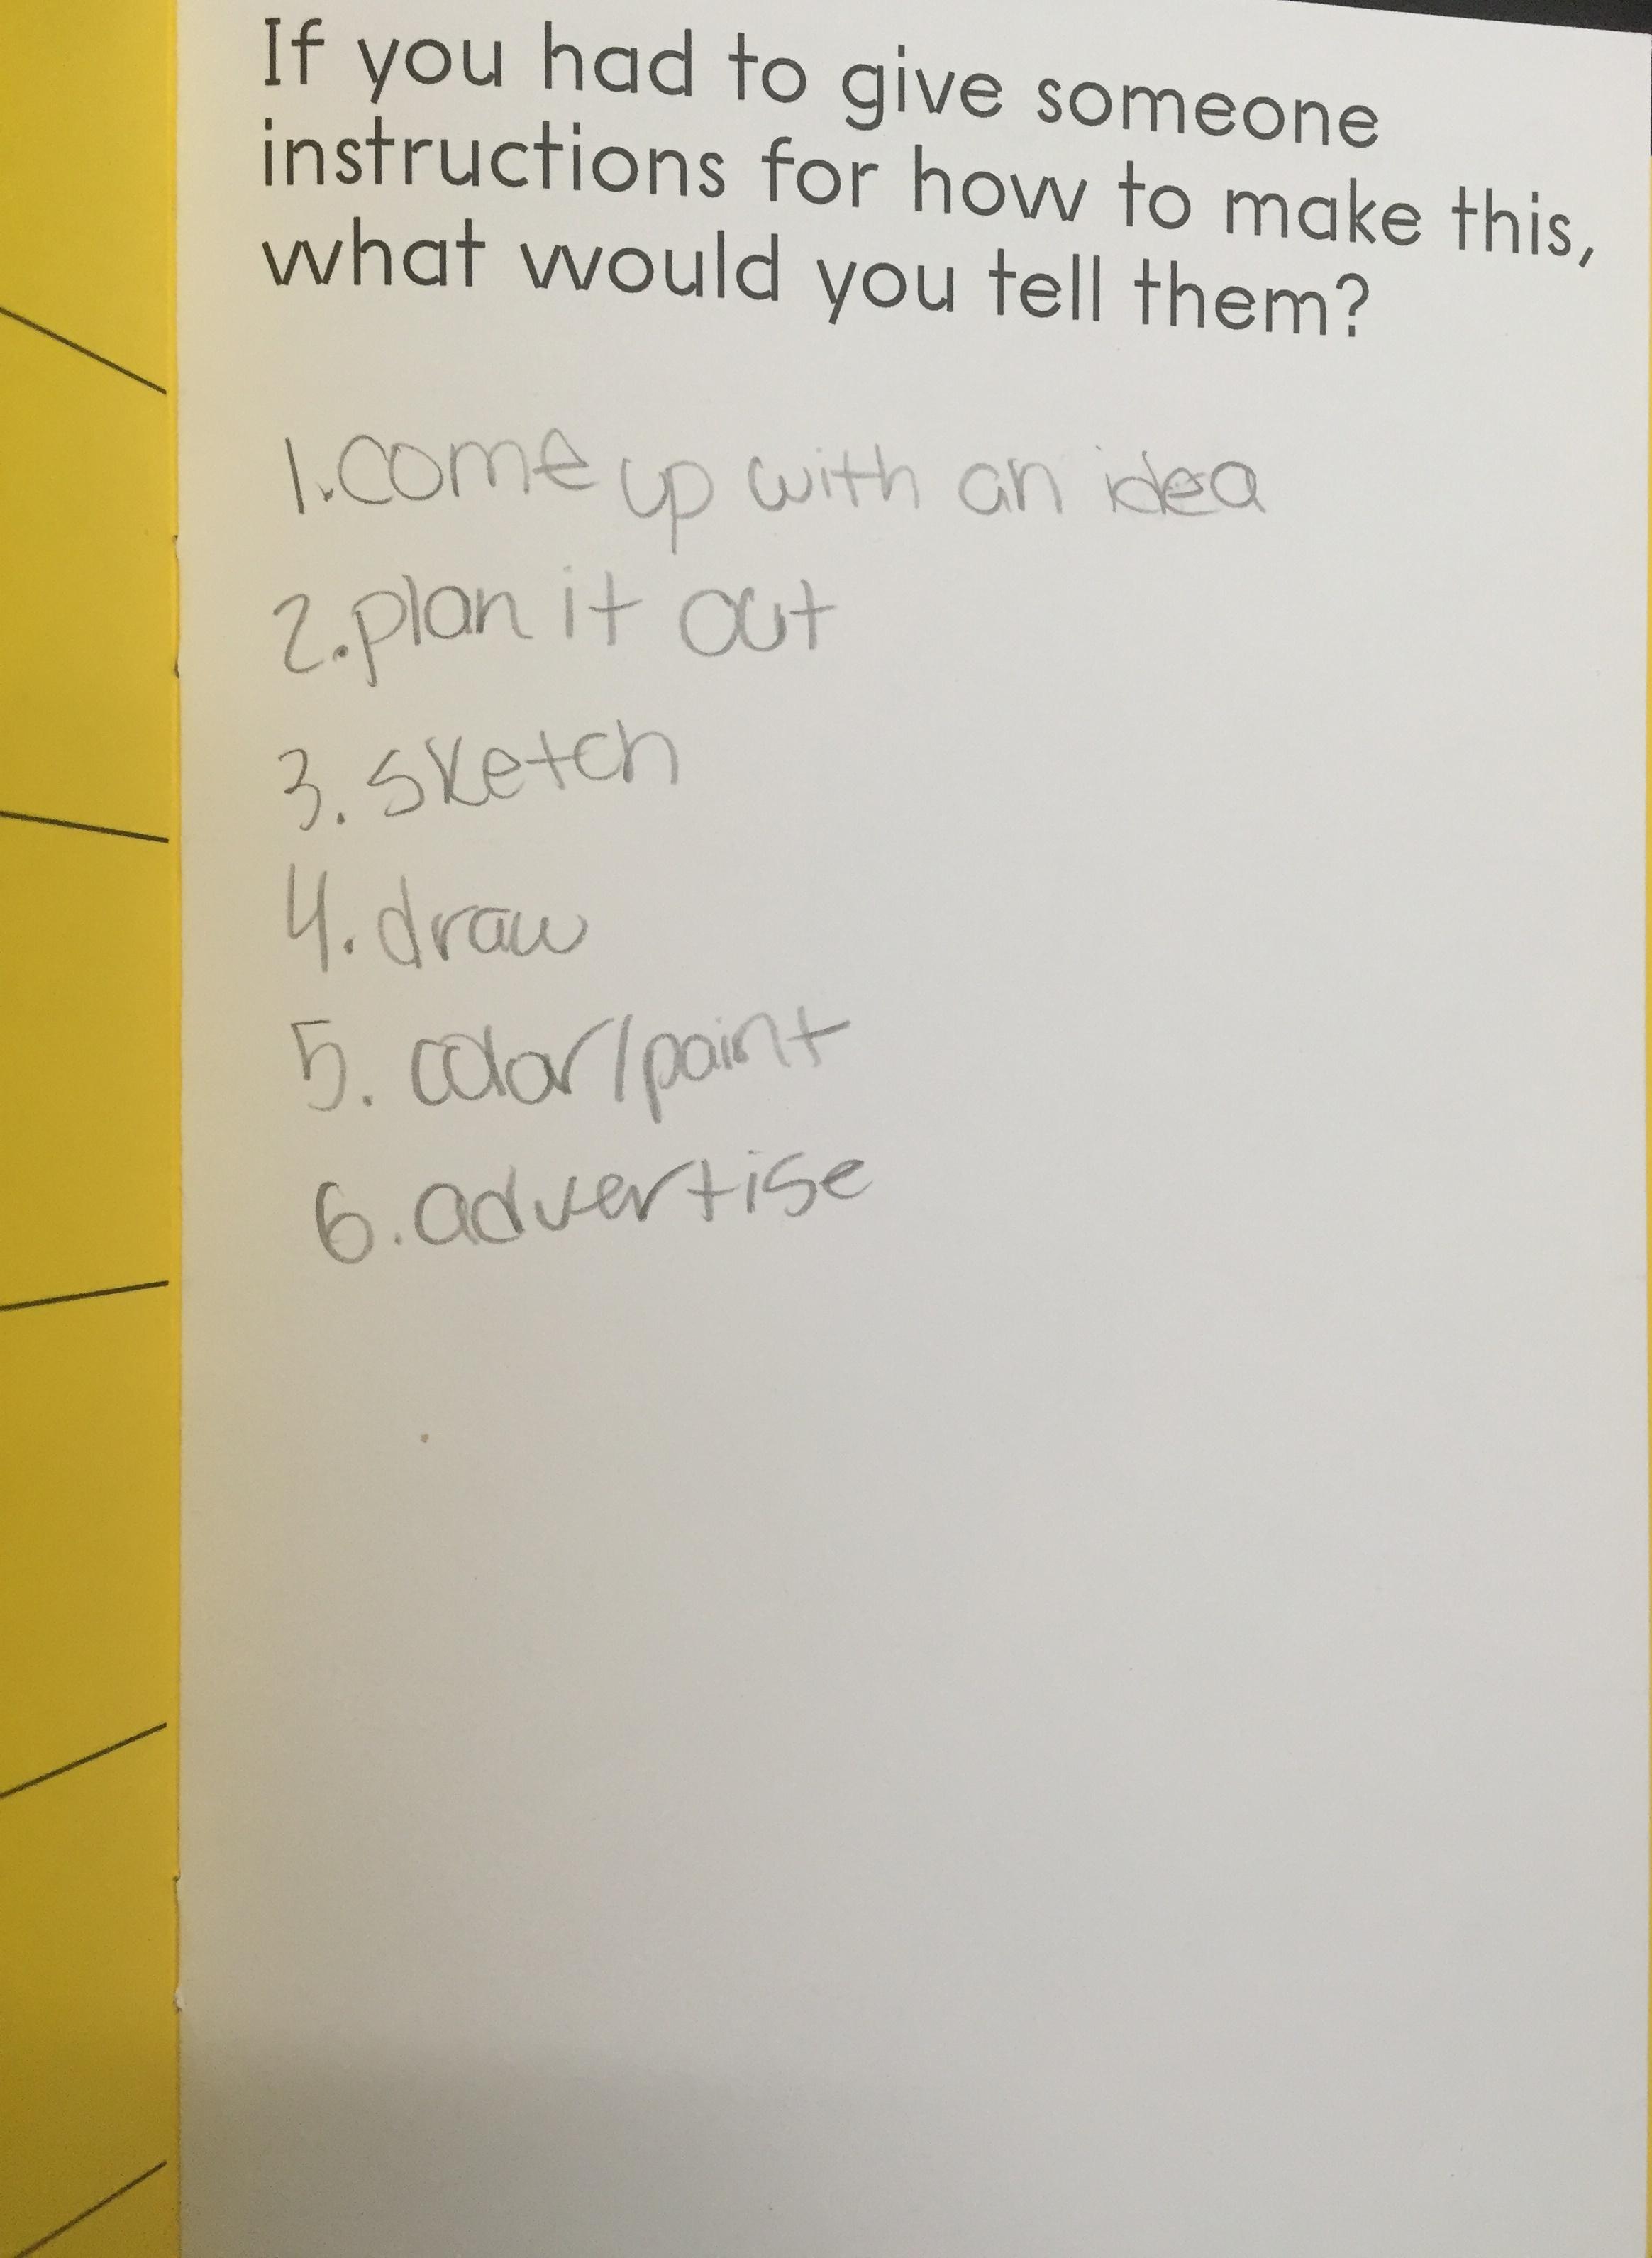 If you had to give someone
instructions for how to make this,
what would you tell them?
1. come up with an idea
2. plan it out
3. sketch
4. draw
5. color/paint
6. advertise